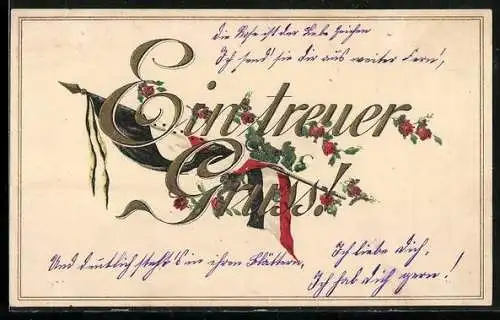 Die Rose ist der Liebe Zeichen
Ich send' sie dir aus weiter Fern',
Ein treuer
Gruss!
Und deutlich steht's in ihren Blättern,
Ich liebe dich,
Ich hab dich gern!